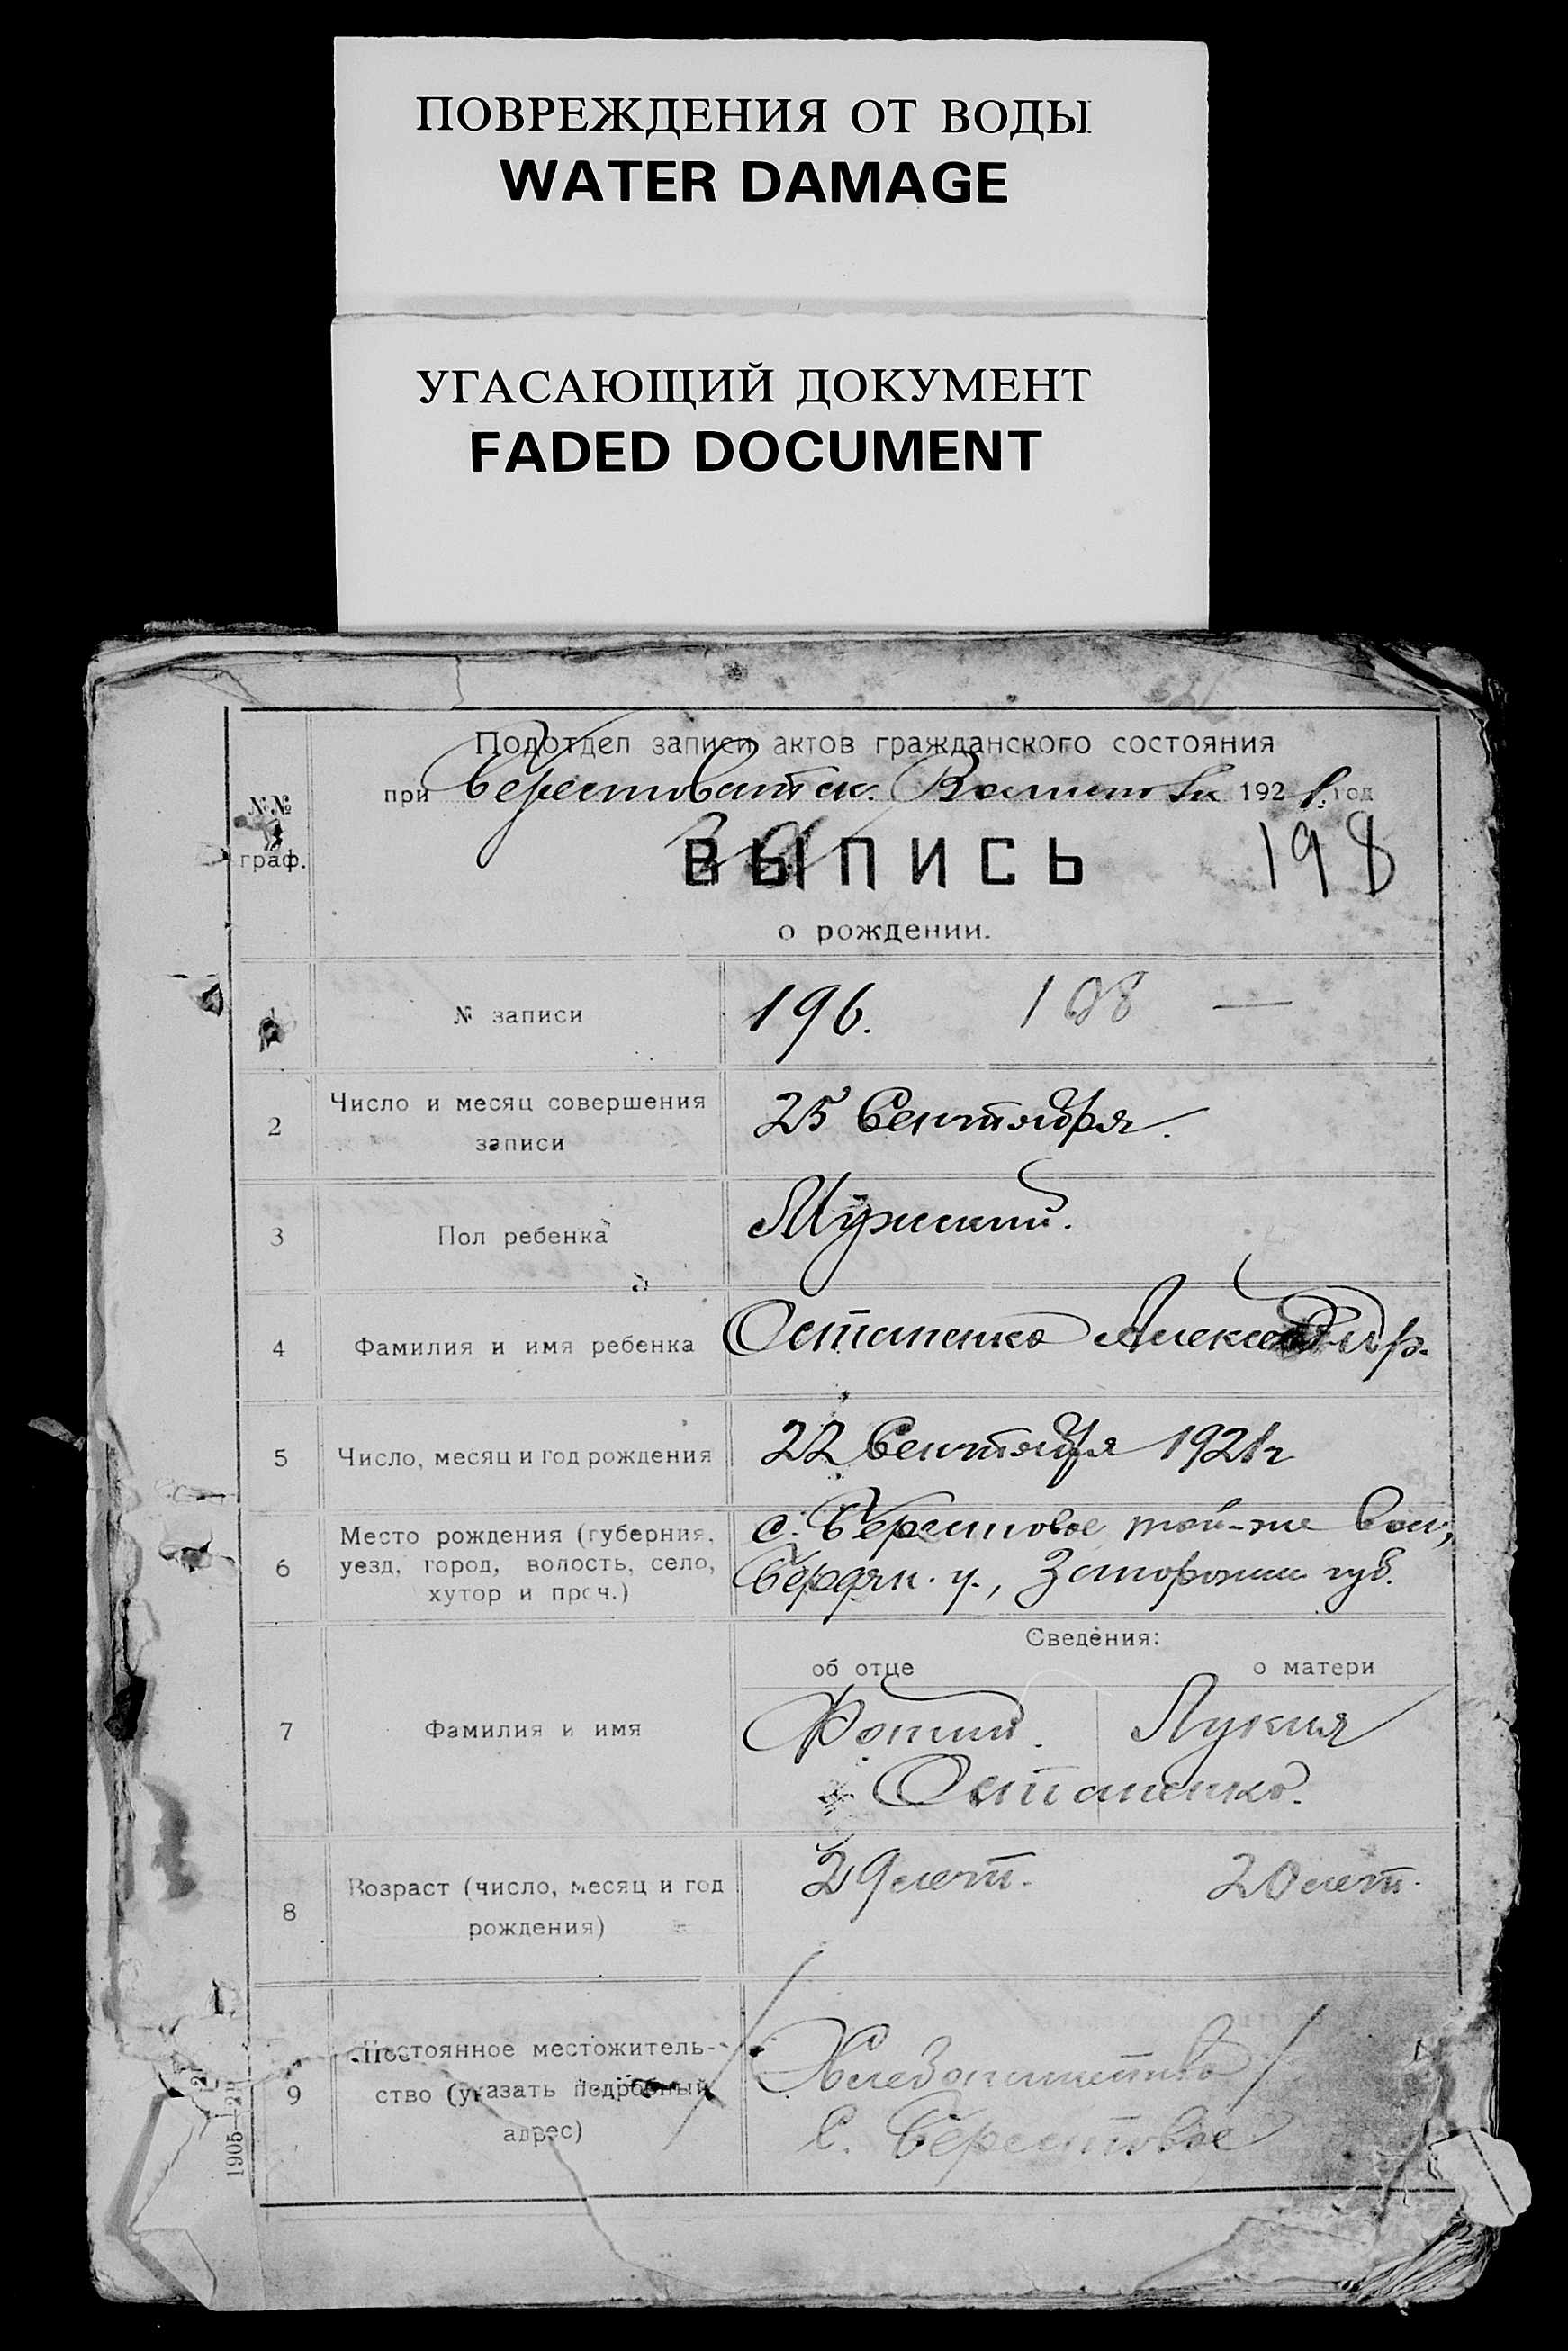 ПОВРЕЖДЕНИЯ ОТ ВОДЫ
WATER DAMAGE
УГАСАЮЩИЙ ДОКУМЕНТ
FADED DOCUMENT
Подотдел записи актов гражданского состояния
при Берестоватск. 1921 год
№№ граф.
ВЫПИСЬ 198
о рождении.
1 № записи 196. 198 —
2 Число и месяц совершения записи 25 Сентября.
3 Пол ребенка Мужский.
4 Фамилия и имя ребенка Остапенко Александр.
5 Число, месяц и год рождения 22 Сентября 1921 г
6 Место рождения (губерния, уезд, город, волость, село, хутор и проч.)
с. Берестовое той-же вол.,
Бердян. у., Запорожск губ.
Сведения:
об отце о матери
7 Фамилия и имя Фотий. Лукия
Остапенко.
8 Возраст (число, месяц и год рождения) 29 лет. 20 лет.
9 Постоянное местожительство (указать подробный адрес)
Хлебопашество
С. Берестовое